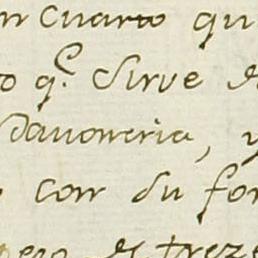 n cuarto qu
o q.e Sirve d
Savoneria, y
con su for
de treze